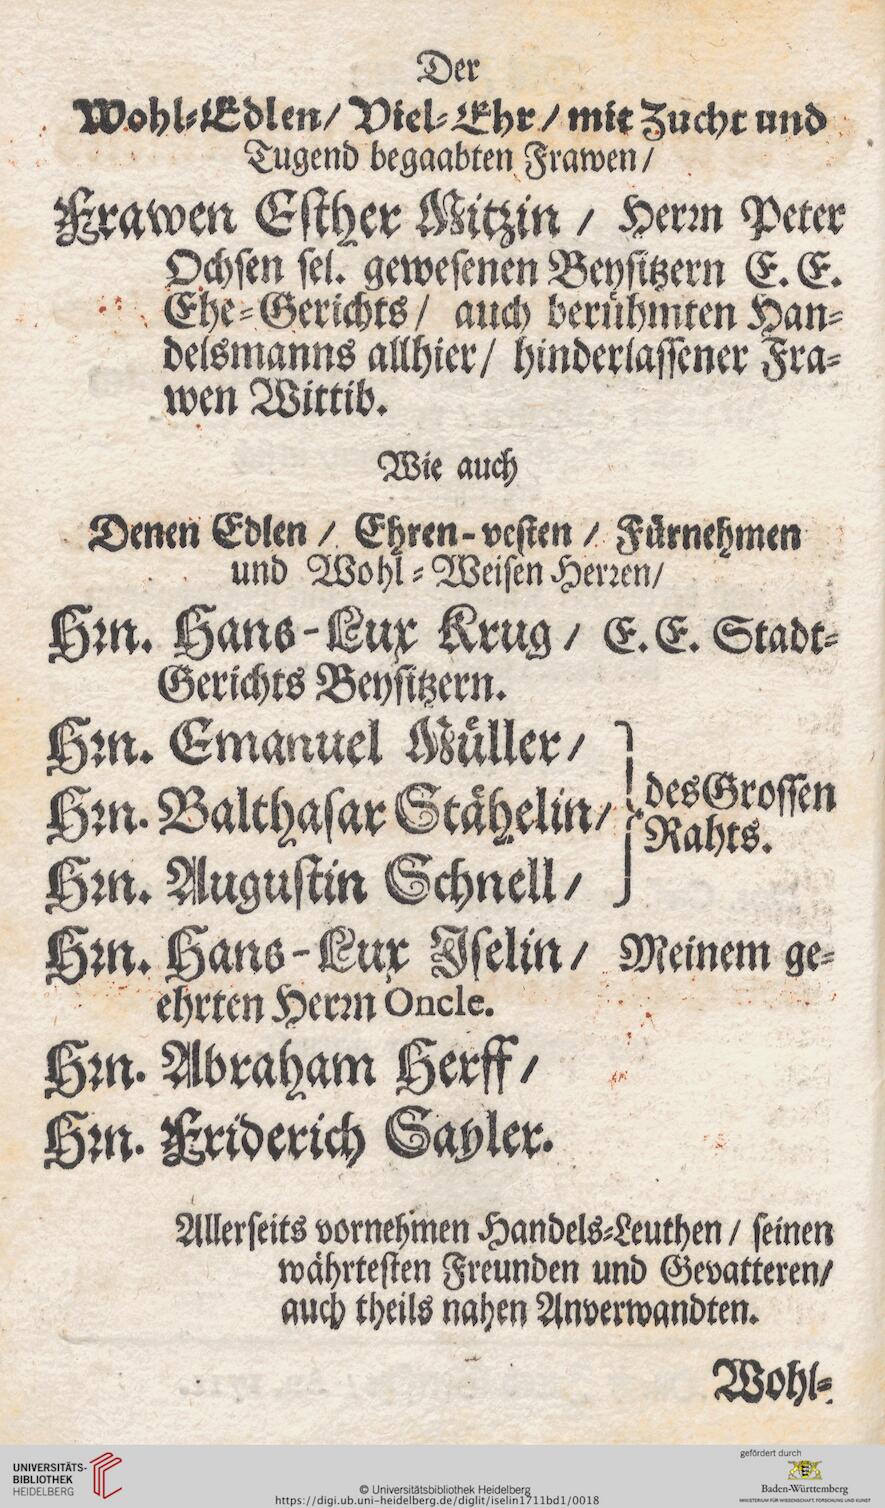 Der
Wohl-Edlen/ Viel-Ehr/ mit Zucht und
Tugend begaabten Frawen/
Frawen Esther Mitzin / Herꝛn Peter
Ochsen sel. gewesenen Beysitzern E. E.
Ehe-Gerichts/ auch berühmten Han-
delsmanns allhier/ hinderlassener Fra-
wen Wittib.
Wie auch
Denen Edlen / Ehren-vesten / Fürnehmen
und Wohl-Weisen Herꝛen/
Hꝛn. Hans-Lux Krug / E. E. Stadt-
Gerichts Beysitzern.
Hꝛn. Emanuel Müller/
Hꝛn. Balthasar Stähelin/
Hꝛn. Augustin Schnell/
des Grossen
Rahts.
Hꝛn. Hans-Lux Iselin/ Meinem ge-
ehrten Herꝛn Oncle.
Hꝛn. Abraham Herff/
Hꝛn. Friderich Sayler.
Allerseits vornehmen Handels-Leuthen / seinen
währtesten Freunden und Gevatteren/
auch theils nahen Anverwandten.
Wohl-
UNIVERSITÄTS-
BIBLIOTHEK
HEIDELBERG
© Universitätsbibliothek Heidelberg
https://digi.ub.uni-heidelberg.de/diglit/iselin1711bd1/0018
gefördert durch
Baden-Württemberg
MINISTERIUM FÜR WISSENSCHAFT, FORSCHUNG UND KUNST